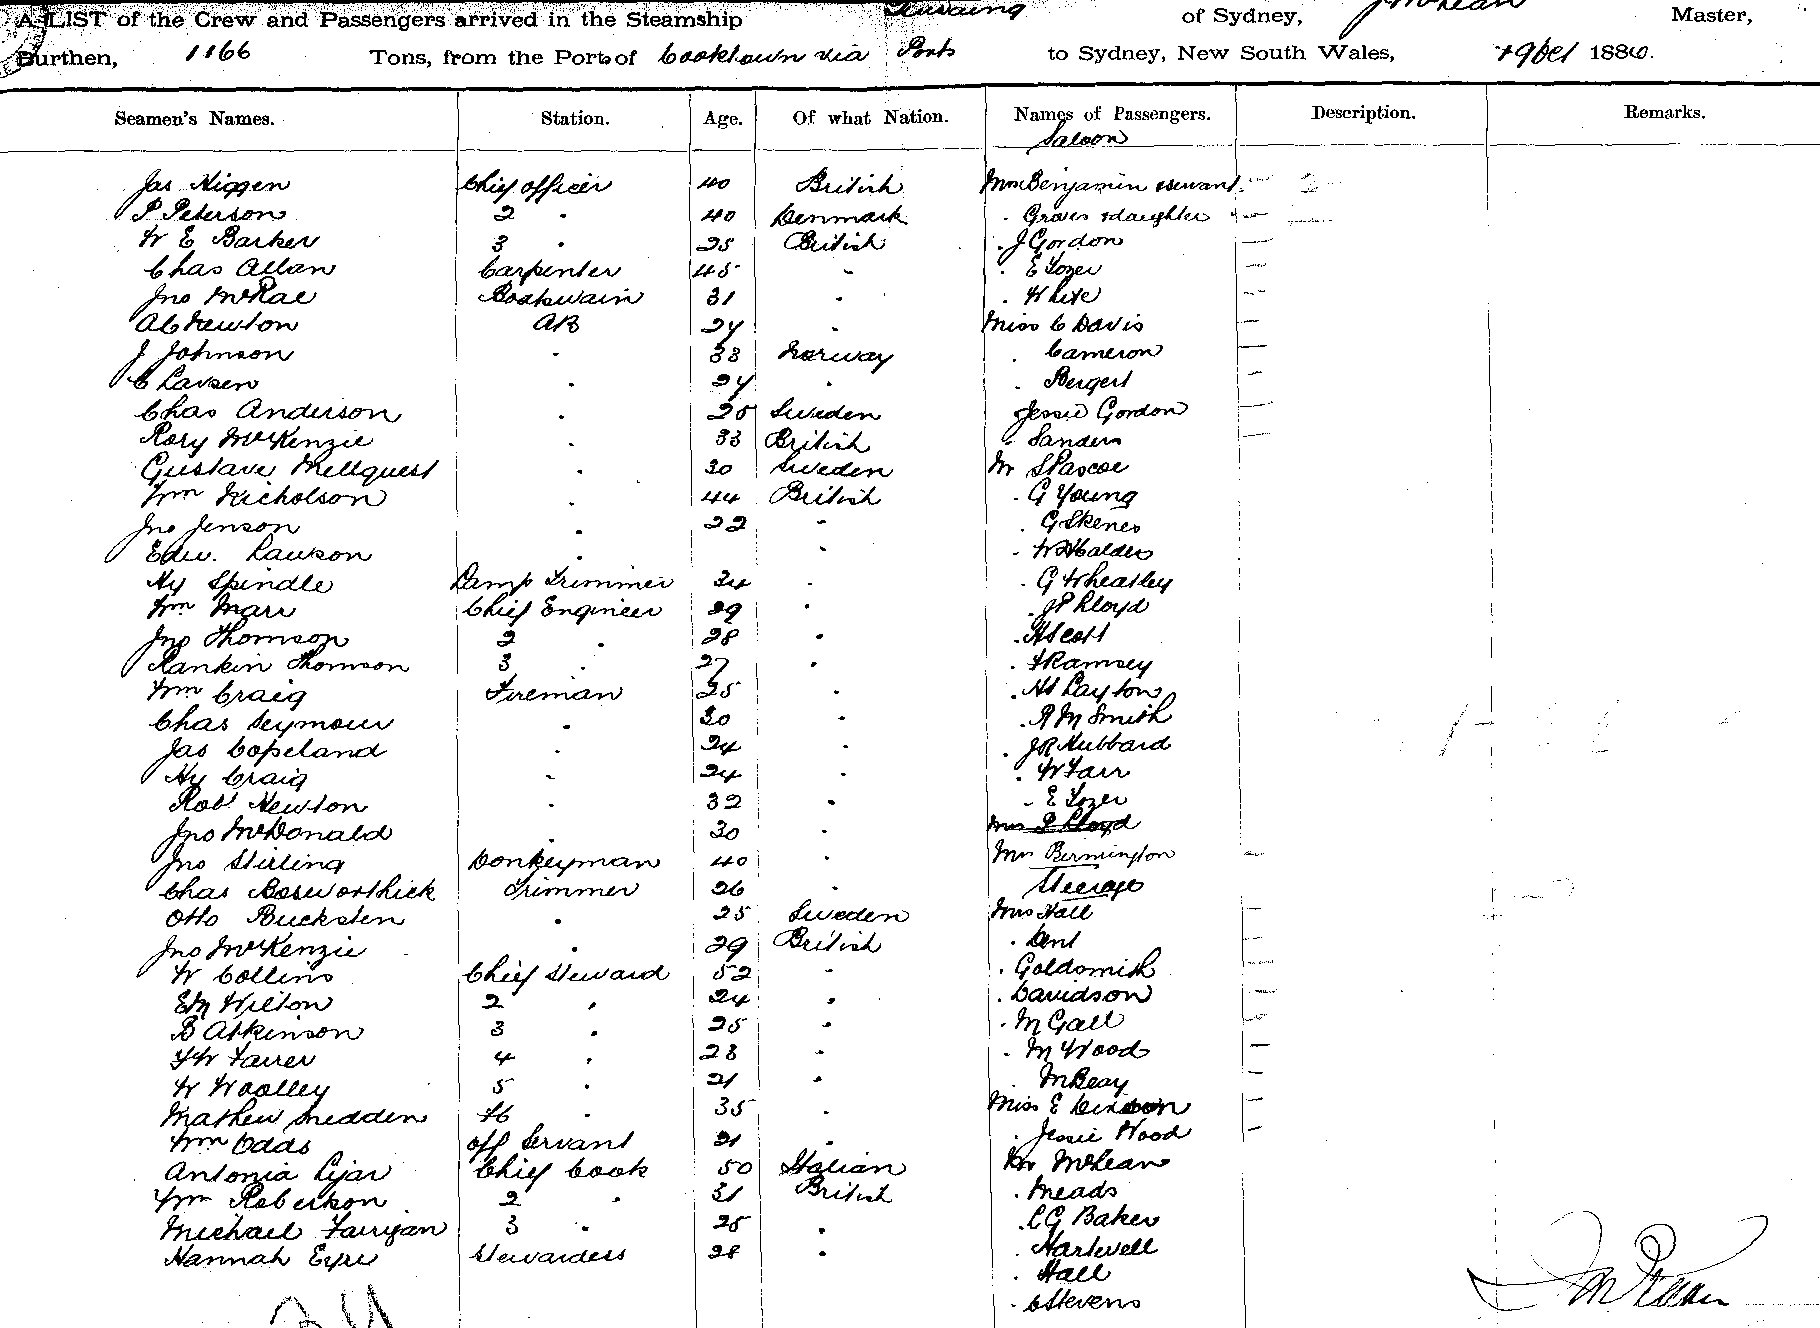 A LIST of the Crew and Passengers arrived in the Steamship of Sydney, J McLean Master,
Burthen, 1166 Tons, from the Port of Cooktown via Ports to Sydney, New South Wales, 188
Seamen's Names. Station. Age. Of what Nation. Names of Passengers. Description. Remarks.
Saloon
Jas Higgen Chief officer 40 British Mrs Benjamin & servant
P Peterson 2 " 40 Denmark " Graves & daughter
W E Barker 3 " 25 British " J Gordon
Chas Allan Carpenter 45 " " E Tozer
Jno McRae Boatswain 31 " " White
A C Newton AB 24 " Miss C Davis
J Johnson " 33 Norway " Cameron
C Larsen " 24 " " Bergert
Chas Anderson " 25 Sweden Jessie Gordon
Rory McKenzie " 33 British " Sanders
Gustave Mellquest " 30 Sweden Mr S Pascoe
Wm Nicholson " 44 British " G Young
Jno Jenson " 22 " " G Skenes
Edw. Lawson " " " W Halder
Hy Spindle Lamp Trimmer 34 " " G Wheatley
Wm Marr Chief Engineer 29 " " J P Lloyd
Jno Thomson 2 " 28 " " H Scott
Rankin Thomson 3 " 27 " " Ramsey
Wm Craig Fireman 25 " " Layton
Chas Seymour " 30 " " R M Smith
Jas Copeland " 24 " " J R Hubbard
Hy Craig " 24 " " W Farr
Robt Newton " 32 " " E Tozer
Jno McDonald " 30 " Mrs P Lloyd
Jno Stirling Donkeyman 40 " Mrs Bermington
Chas Bosworthick Trimmer 26 " Steerage
Otto Bucksten " 25 Sweden Mrs Hall
Jno McKenzie " 29 British " Dent
W Collins Chief Steward 52 " " Goldsmith
E M Wilton 2 " 24 " " Davidson
B Atkinson 3 " 25 " " McGall
F W Farrer 4 " " " M Wood
W Woolley 5 " 21 " McBeay
Mathew Snedden " 35 " Miss E
Wm Odds off Servant 21 " " Jessie Wood
Antonia Cjar Chief Cook 50 Italian Mr McLean
Wm Robertson 2 " 31 British " Meads
Michael Farrgan 3 " 25 " " C G Baker
Hannah Eyre Stewardess 28 " " Hartwell
" Hall
" C Stevens